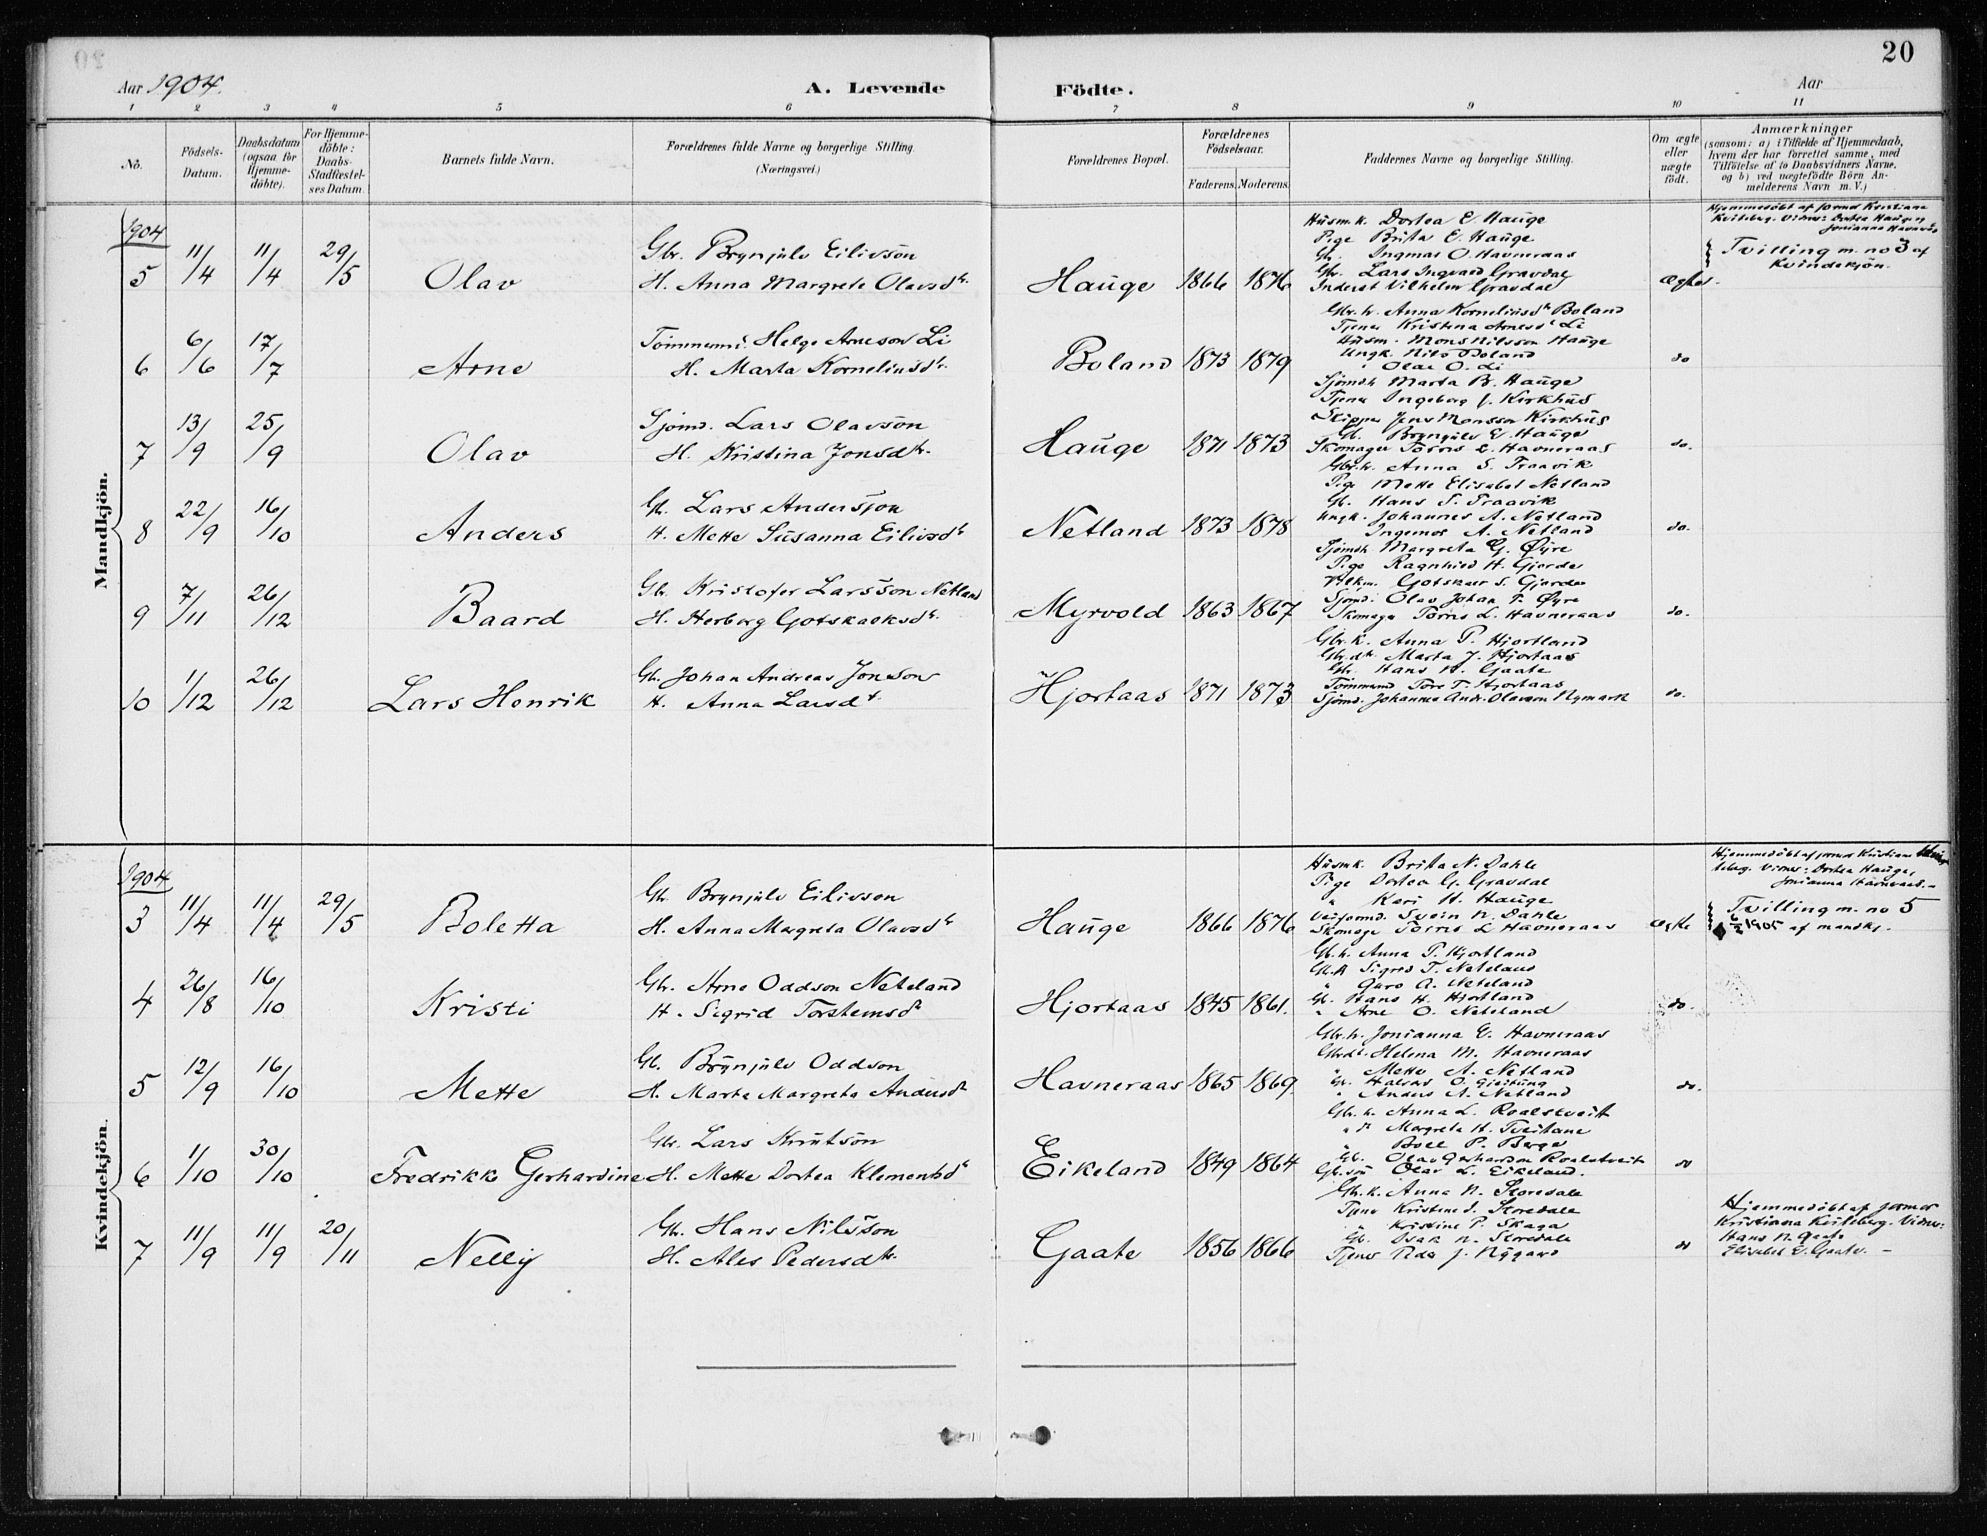 20
Aar 1904.
A. Levende Födte.
Aar
1 2 3 4 5 6 7 8 9 10 11
No.
Födsels-Datum.
Daabsdatum (ogsaa for Hjemme-döbte).
For Hjemme-döbte: Daabs-Stadfæstel-ses Datum.
Barnets fulde Navn.
Forældrenes fulde Navne og borgerlige Stilling. (Næringsvei.)
Forældrenes Bopæl.
Forældrenes Födselsaar.
Faderens. Moderens.
Faddernes Navne og borgerlige Stilling.
Om ægte eller uægte födt.
Anmærkninger
(saasom: a) i Tilfælde af Hjemmedaab, hvem der har forrettet samme, med Tilföielse af to Daabsvidners Navne, og b) ved uægtefödte Börn An-melderens Navn m. V.)
Mandkjön.
1904
5 11/4 11/4 29/5 Olav
Gbr. Brynjulv Eilivson
H. Anna Margrete Olavsdt.
Hauge 1866 1876
Husm.k. Dortea E. Hauge
Pige Brita E. Hauge
Gbr. Ingmar O. Havneraas
Gbr. Lars Ingvald Gravdal
Inderst Vilhelm Gravdal
ægte.
Hjemmedöbt af Jormor Kristiana
Kviteberg. Vidner: Dortea Hauge og
Jonianna Havneraas
Tvilling m. no 3 af
Kvindekjön.
6 6/6 17/7 Arne
Tömmermd. Helge Arneson Li
H. Marta Korneliusdt.
Boland 1873 1879
Gbr.k. Anna Korneliusdt Boland
Tjener Kristina Arnesdt Li
Husm. Mons Nilsson Hauge
Ungk. Nils Boland
" Olai O. Li
do
7 13/9 25/9 Olav
Sjömd. Lars Olavson
H. Kristina Jonsdtr.
Hauge 1871 1873
Sjömdk Marta B. Hauge
Tjener Ingeborg J. Kirkhus
Skipper Jens Monsson Kirkhus
Gb. Brynjulv E. Hauge
Skomager Torris L. Havneraas
do.
8 22/9 16/10 Anders
Gb. Lars Andersson
H. Mette Susanna Eilivsdt
Netland 1873 1878
Gbr.k. Anna S. Traavik
Pige Mette Elisabet Netland
Gb. Hans S. Traavik
Ungk. Johannes A. Netland
" Ingemor A. Netland
do.
9 7/11 26/12 Baard
Gb. Kristofer Larsson Netland
H. Herborg Gotskalksdt.
Myrvold 1863 1867
Sjömdk Margreta G. Øyre
Pige Ragnhild H. Gjerde
Gotskalk S. Gjerde
Sjömd. Olav Johan T. Øyre
Skomager Torris L. Havneraas
do.
10 1/12 26/12 Lars Henrik
Gb. Johan Andreas Jonson
H. Anna Larsdt
Hjortaas 1871 1873
Gbr.k. Anna P. Hjortland
Gbr.dt. Marta J. Hjortaas
Gbr. Hans N. Gaate
Tömmermd Tore T. Hjortaas
Sjömd. Johannes Andr. Olavson Nymark
do.
Kvindekjön.
1904
3 11/4 11/4 29/5 Boletta
Gbr. Brynjulv Eilivson
H. Anna Margreta Olavsdt
Hauge 1866 1876
Husm.k. Brita N. Dahle
Pige Dortea G. Gravdal
" Kari H. Hauge
Svein N. Dahle
Skomager Torris L. Havneraas
ægte
Hjemmedöbt af Jormor Kristiana
teberg. Vidner: Dortea Hauge,
Jonianna Havneraas.
Tvilling m. no 5
1905 af mandkj.
4 26/8 16/10 Kristi
Gbr. Arne Oddson Neteland
H. Sigrid Torsteinsdt
Hjortaas 1845 1861.
Gb.k. Anna P. Hjortland
Gb.k Sigrid T. Neteland
" Guro A. Neteland
Gb. Hans H. Hjortland
" Arne O. Neteland
do.
5 12/9 16/10 Mette
Gb. Brynjulv Oddson
H. Marta Margreta Andersdt
Havneraas 1865 1869.
Gbr.k. Jonianna E. Havneraas
Gbrdt. Helena M. Havneraas
" Mette A. Netland
Gb. O.
" Anders A. Netland
do.
6 1/10 30/10 Fredrikke Gerhardine
Gbr. Lars Knutson
H. Mette Dortea Klementsdt
Eikeland 1849 1864
Gbr.k. Anna L. Roalstveit
" dt Margreta H. Tveitane
" P. Berge
Gb. Olav Gerhardson Roalstveit
Gb.sön Olav L. Eikeland.
do
7 11/9 11/9 20/11 Nelly
Gb. Hans Nilsson
H. Ales Pedersdtr.
Gaate 1856 1866
Gb.k. Anna N. Storedale
Tjener Kristine I. Storedale
" Kristine P. Skaga
Gb. Isak N. Storedale
Tjener Peder J. Nygaard
do
Hjemmedöbt af Jormor
Kristiana Kviteberg. Vidner:
Hans N. Gaate
Elisabet E. Gaate. –